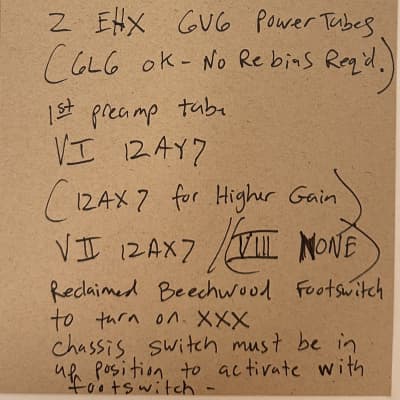 2 EHX 6V6 Power Tubes
(6L6 ok - No Rebias Req'd.)
1st preamp tube
VI 12AY7
(12AX7 for Higher Gain)
VII 12AX7 / (VIII NONE)
Reclaimed Beechwood Footswitch
to turn on XXX
Chassis switch must be in
up position to activate with
footswitch -